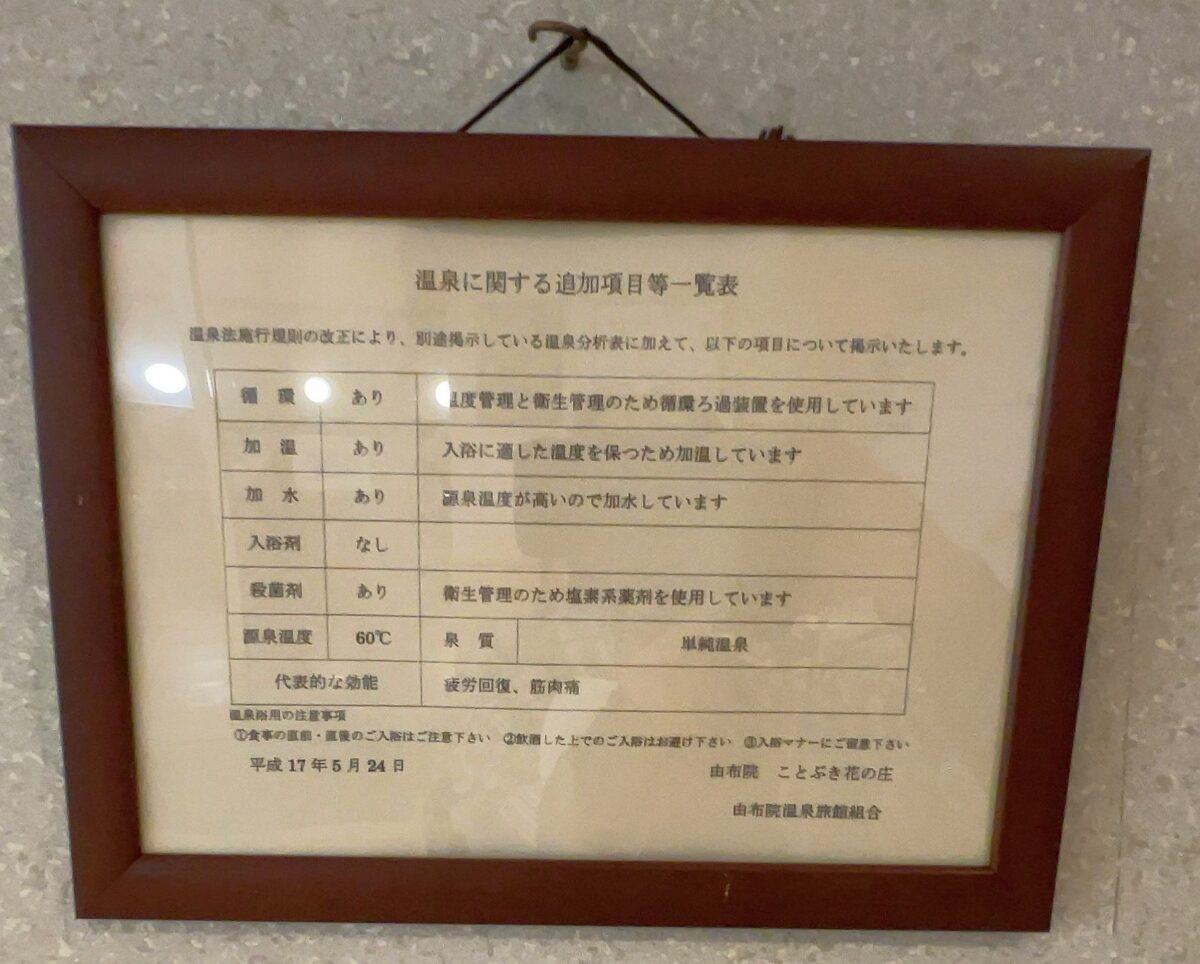 温泉に関する追加項目等一覧表
温泉法施行規則の改正により、別途掲示している温泉分析表に加えて、以下の項目について掲示いたします。
循　環　あり　温度管理と衛生管理のため循環ろ過装置を使用しています
加　温　あり　入浴に適した温度を保つため加温しています
加　水　あり　源泉温度が高いので加水しています
入浴剤　なし
殺菌剤　あり　衛生管理のため塩素系薬剤を使用しています
源泉温度　60℃　泉　質　単純温泉
代表的な効能　疲労回復、筋肉痛
温泉浴用の注意事項
①食事の直前・直後のご入浴はご注意下さい　②飲酒した上でのご入浴はお避け下さい　③入浴マナーにご留意下さい
平成 17 年 5 月 24 日　由布院　ことぶき花の庄
由布院温泉旅館組合